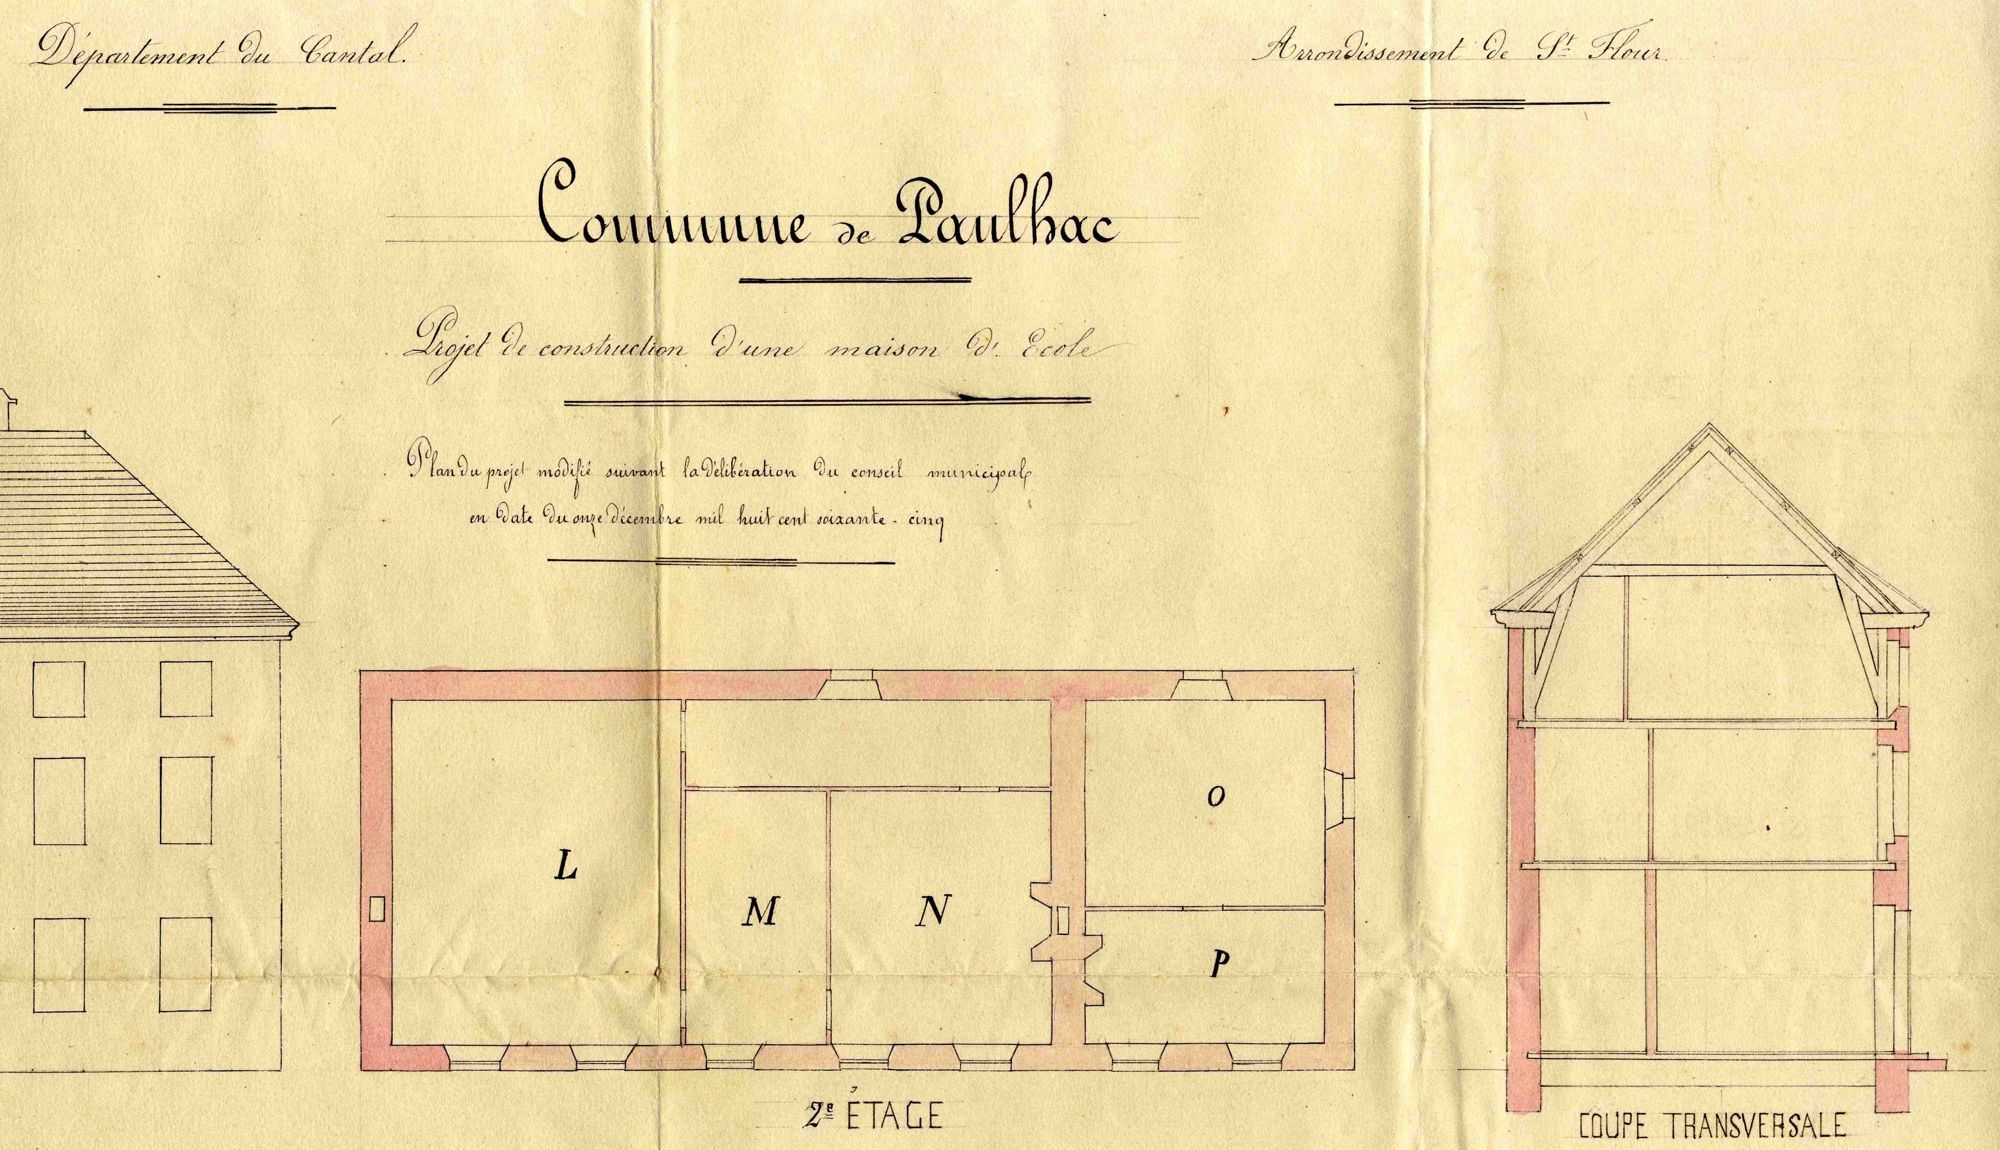 Département du Cantal.
Arrondissement de St Flour.
Commune de Paulhac
Projet de construction d'une maison d'. Ecole
Plan du projet modifié suivant la délibération du conseil municipal
en date du onze décembre mil huit cent soixante-cinq
L
M
N
O
P
2e ÉTAGE
COUPE TRANSVERSALE